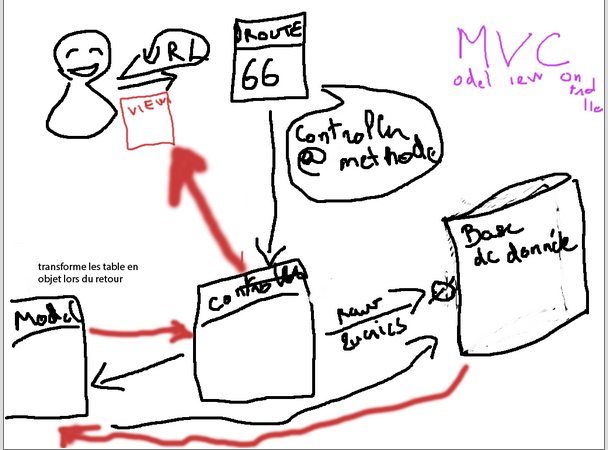 URL
ROUTE
66
VIEW
MVC
odel iew on
trol
ller
Controller
@ methode
Base
de donnée
transforme les table en
objet lors du retour
Model
Controller
raw
queries